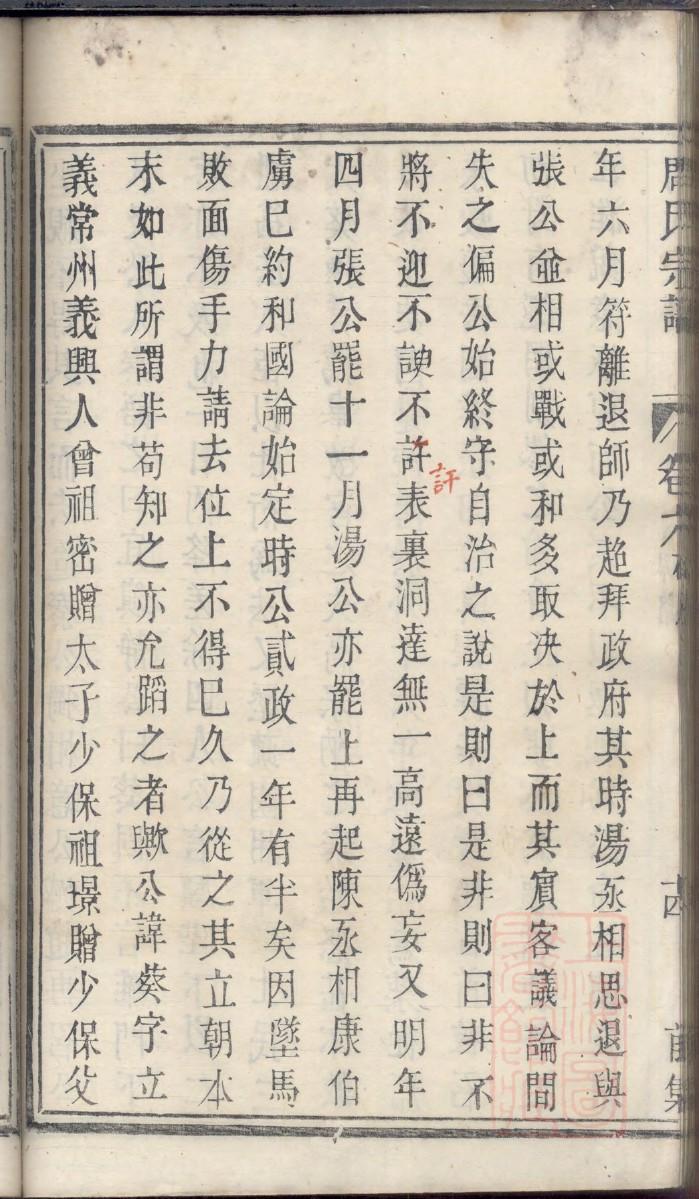 周氏宗譜 卷六 十四 前集
年六月符離退師乃趂拜政府其時湯丞相思退與
張公竝相或戰或和多取决於上而其賔客議論間
失之偏公始終守自治之說是則曰是非則曰非不
將不迎不諛不許表裏洞達無一高遠僞妄又明年
訐
四月張公罷十一月湯公亦罷上再起陳丞相康伯
虜巳約和國論始定時公貳政一年有半矣因墜馬
敗面傷手力請去位上不得巳久乃從之其立朝本
末如此所謂非苟知之亦允蹈之者歟公諱葵字立
義常州義興人曾祖密贈太子少保祖璟贈少保父